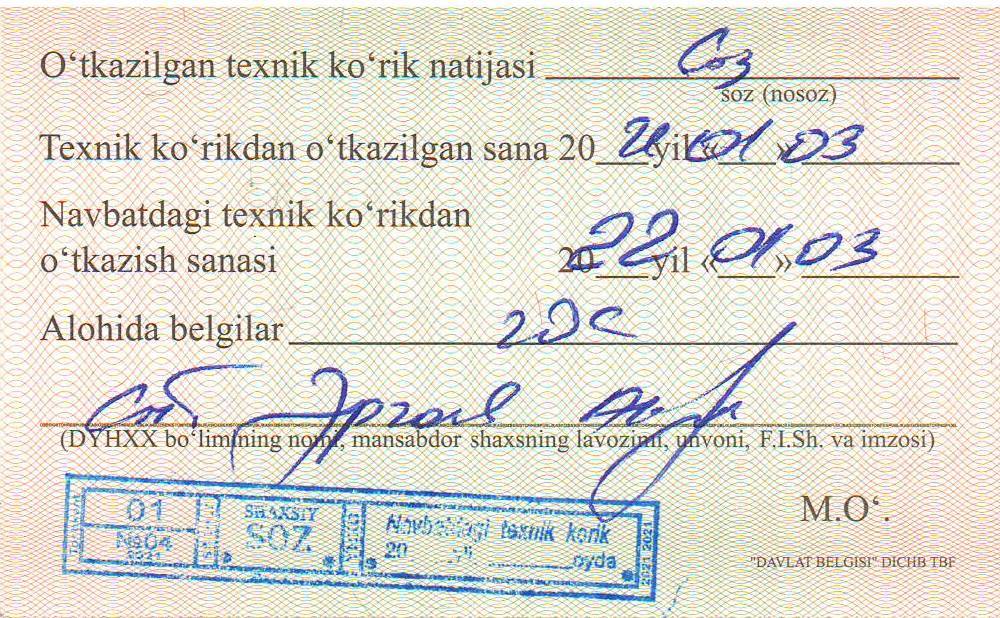 O‘tkazilgan texnik ko‘rik natijasi Соз
soz (nosoz)
Texnik ko‘rikdan o‘tkazilgan sana 20 21 yil «01» 03
Navbatdagi texnik ko‘rikdan
o‘tkazish sanasi 20 22 yil «01» 03
Alohida belgilar
(DYHXX bo‘limining nomi, mansabdor shaxsning lavozimi, unvoni, F.I.Sh. va imzosi)
M.O‘.
01 SHAXSIY Navbatdagi texnik korik
№04 SOZ 20 oyda
2021 2021 2021
"DAVLAT BELGISI" DICHB TBF